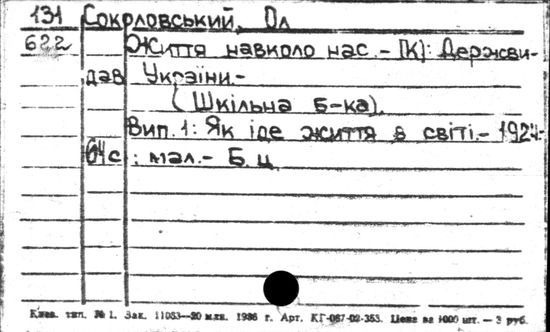 131 Сокрловський, Ол
622 Життя навколо нас.- [К]: Держви-
дав України.-
(Шкільна б-ка).
Вип. 1: Як іде життя в світі.- 1924.-
64с.: мал.- Б.ц.
Киев. тип. № 1. Зак. 11033—20 млн. 1986 г. Арт. КГ-087-02-353. Цена за 1000 шт. — 3 руб.